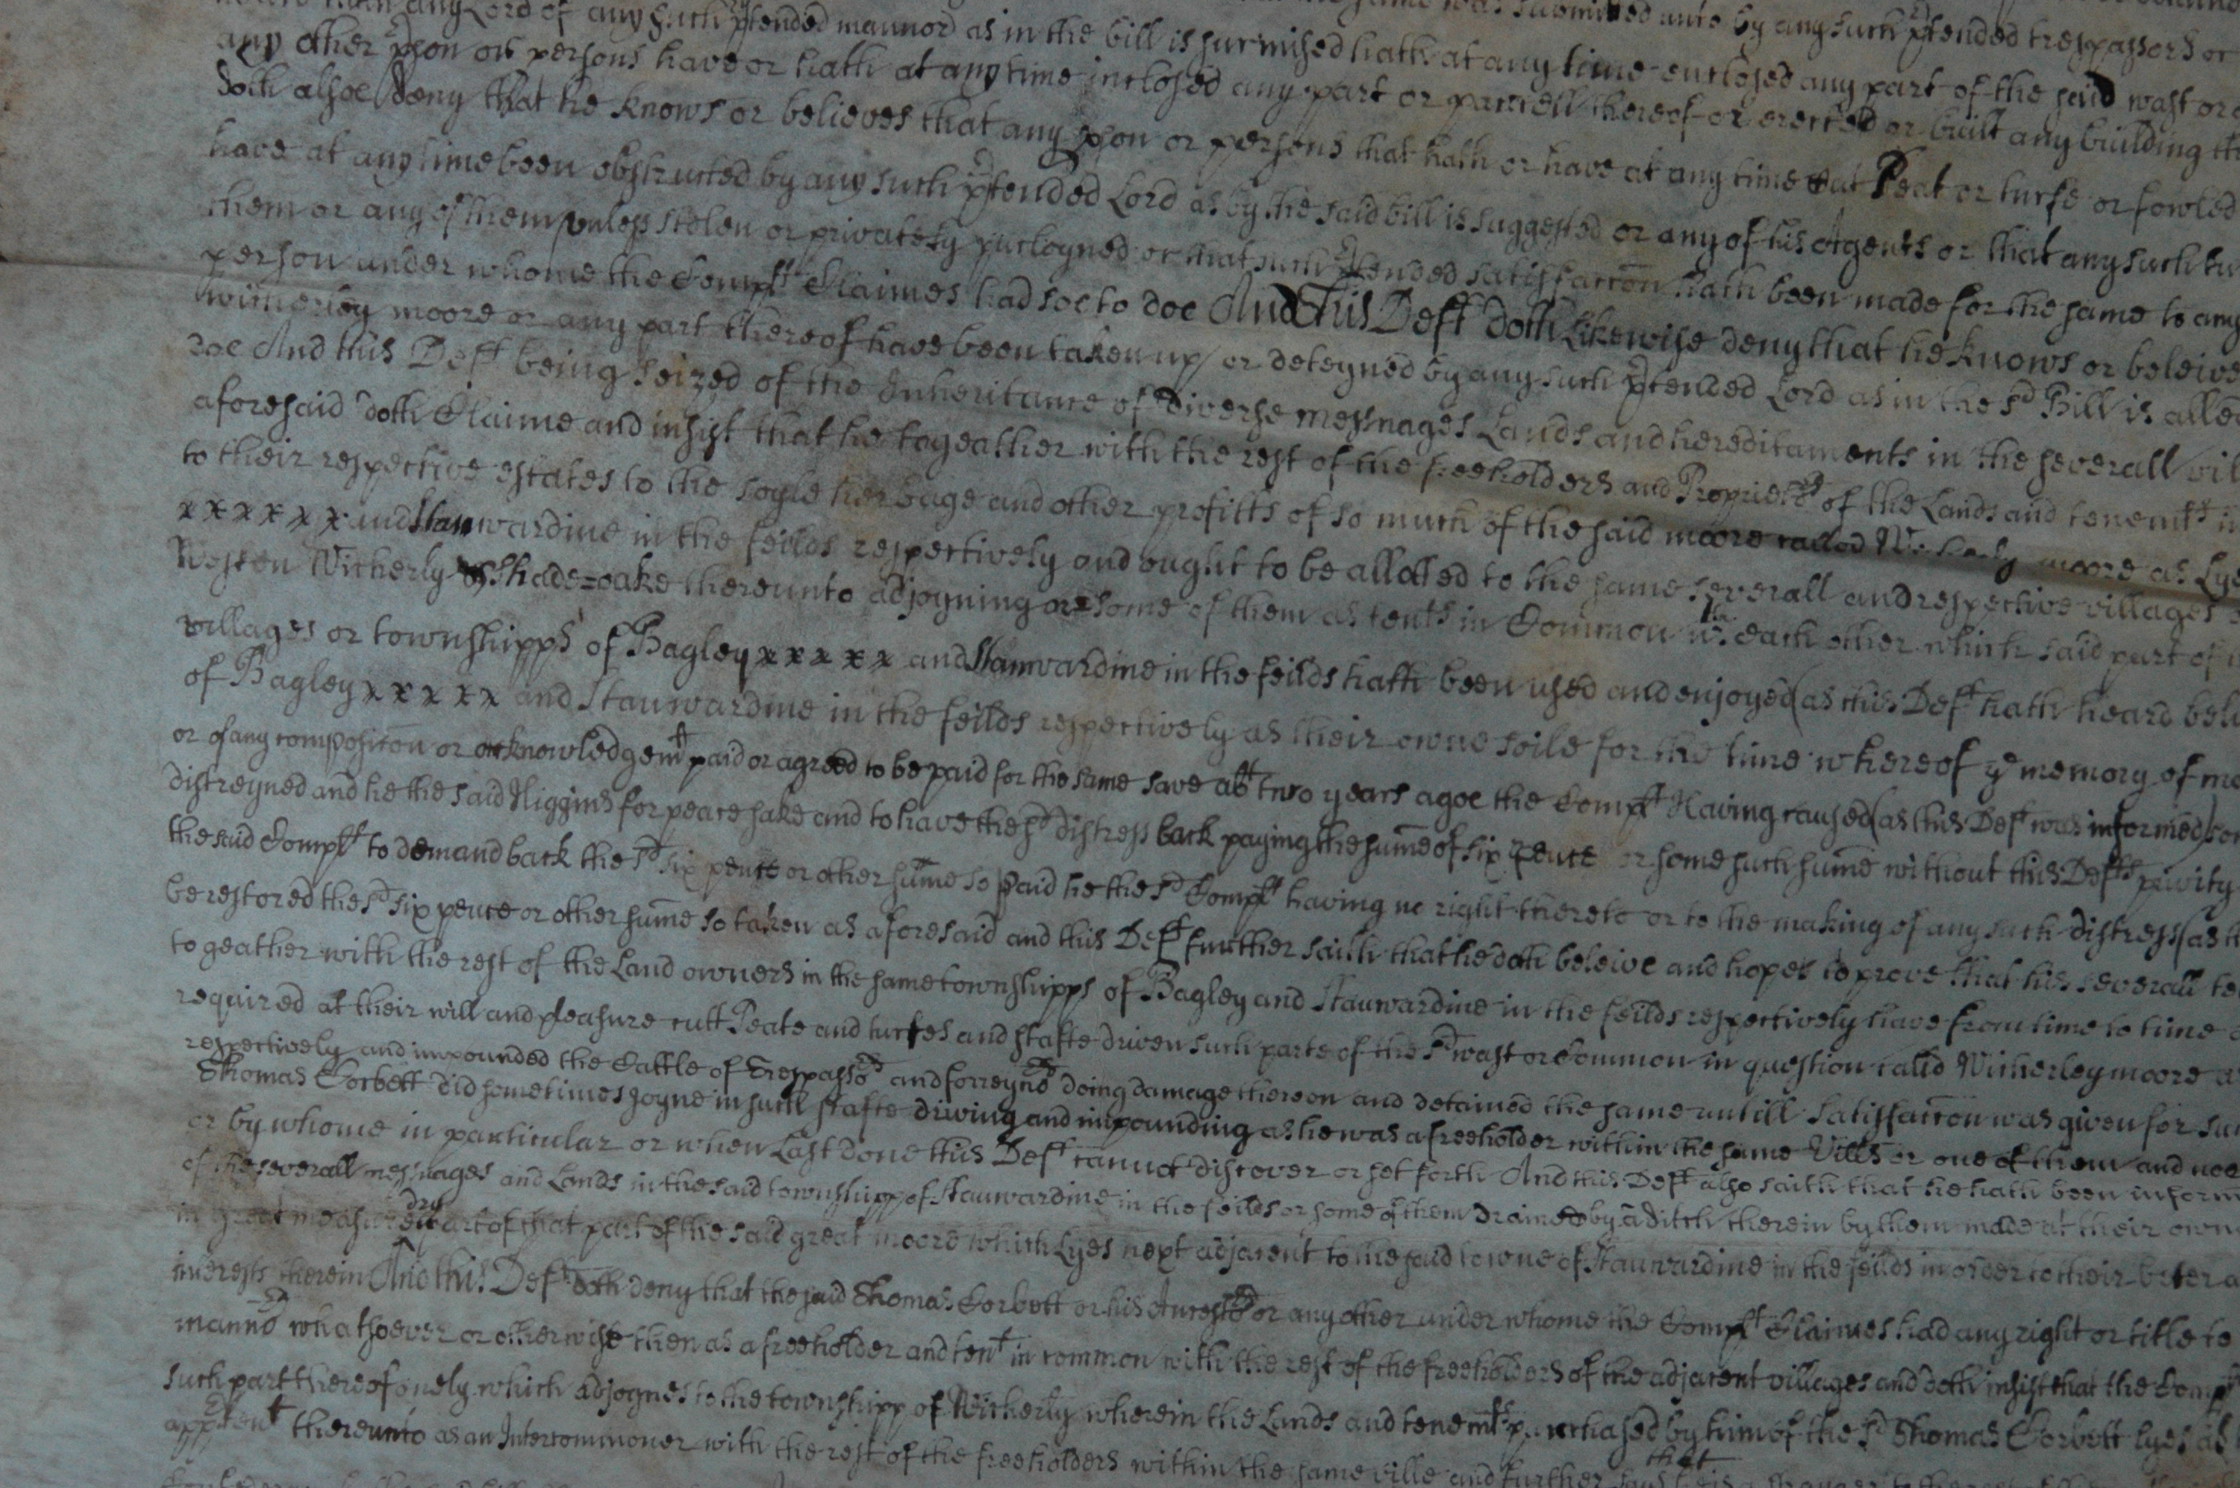 any Lord of any such p'tended mannor as in the bill is surmised hath at any time enclosed any part of the said wast or
any other p'son or persons have or hath at any time inclosed any part or parcell thereof or erected or built any building
doth alsoe deny that he knows or believes that any p'son or persons that hath or have at any time Cut Peat or turfe or fowled
have at any time been obstructed by any such p'tended Lord as by the said bill is suggested or any of his Agents or that any such
them or any of them unless stolen or privately purloyned or that such p'tended satisfaccon hath been made for the same to any
person under whome the Compt Claimes had soe to doe And This Deft doth likewise deny that he knows or beleive
moore or any part thereof have been taken up or deteyned by any such p'tended Lord as in the sd Bill is
doe And this Deft being seized of the Inheritance of diverse messuages Lands and hereditaments in the severall
aforesaid doth Claime and insist that he togeather with the rest of the freeholders and of the Lands and tenemts
to their respective estates to the soyle herbage and other profitts of so much of the said moore called moore as
xxxxxx and Stanwardine in the feilds respectively and ought to be allotted to the same severall and respective villages
Weston Witherly Shade=oake thereunto adjoyning or some of them as tents in Common wth each other which said part of
villages or townshipps of Bagley xxxxx and Stanwardine in the feilds hath been used and enjoyed (as this Deft hath heard
of Bagley xxxxx and Stanwardine in the feilds respectively as their owne soile for the time whereof ye memory of
or of any composicon or acknowledgemt paid or agreed to be paid for the same save abt two years agoe the Compt Having caused (as this Deft was informed)
distreyned and he the said Higgins for peace sake and to have the sd distress back paying the sume of six pence or some such sume without this Defts privity
the said Compt to demand back the sd six pence or other sume so paid he the sd Compt having no right thereto or to the making of any such distress (as
be restored the sd six pence or other sume so taken as aforesaid and this Deft further saith that he doth beleive and hopes to prove that his severall
to geather with the rest of the Land owners in the same townshipps of Bagley and Stanwardine in the feilds respectively have from time to time
required at their will and pleasure cutt Peate and turfes and stafte driven such parte of the sd wast or Common in question called Witherley moore
respectively and impounded the Cattle of Trespassors and forreynors doing damage thereon and detained the same untill satisfaccon was given for
Thomas Corbett did sometimes joyne in such stafte driving and impounding as he was a freeholder within the same Vills or one of them and
or by whome in particular or when Last done this Deft cannot discover or set forth And this Deft also saith that he hath been
of the severall messuages and Lands in the said townshipp of Stanwardine in the feilds or some of them Drained by a ditch therein by them made at their own
in great measure dry part of that part of the said great moore which Lyes next adjacent to the said towne of Stanwardine in the feilds in order to their
interests therein And this Deft doth deny that the said Thomas Corbett or his Ancestors or any other under whome the Compt Claimes had any right or title to
mannor whatsoever or otherwise then as a freeholder and tent in common with the rest of the freeholders of the adjacent villages and doth insist that the Compt
such part thereof onely which adjoynes to the townshipp of Witherly wherein the Lands and tenemts purchased by him of the sd Thomas Corbett lyes as
thereunto as an Intercommoner with the rest of the freeholders within the same ville and further that